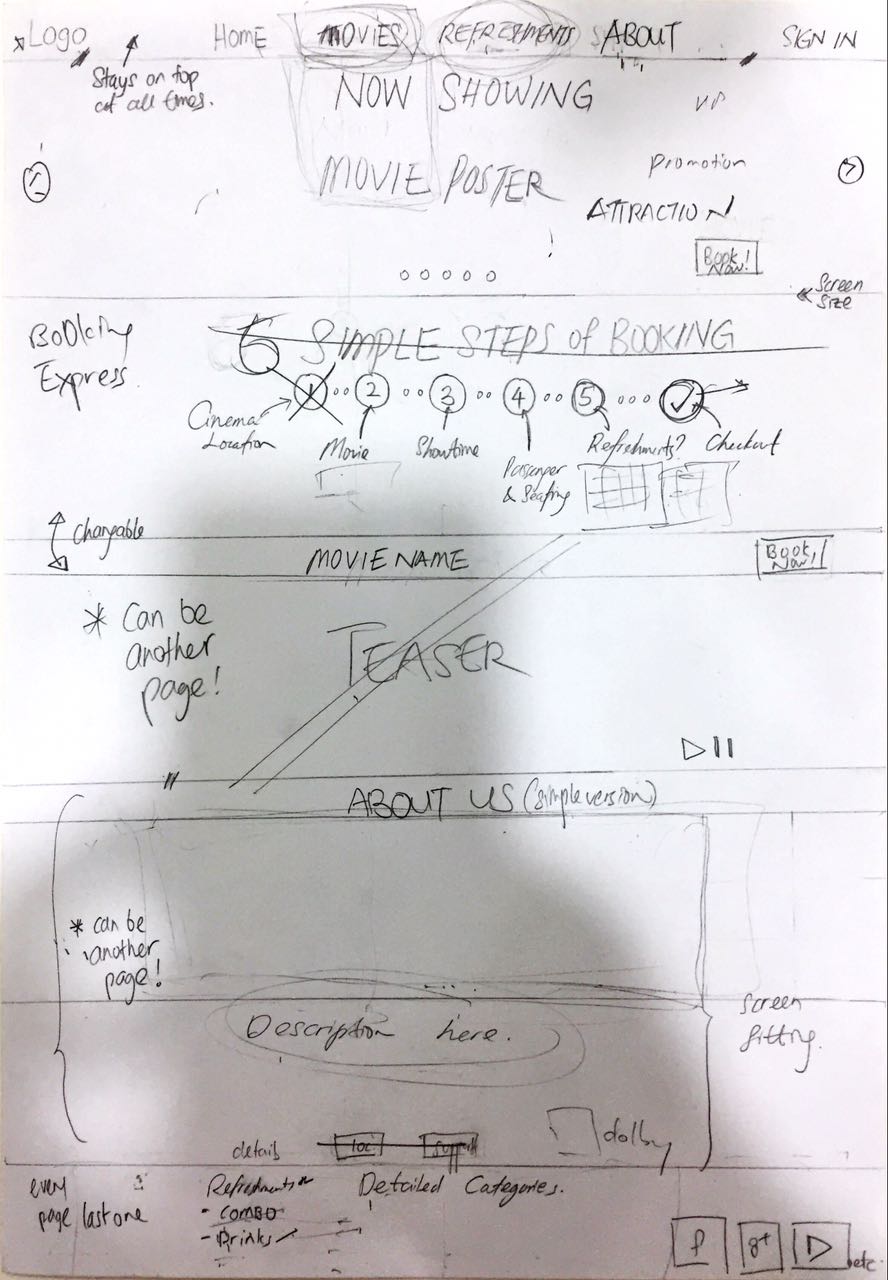 Logo HOME MOVIES REFRESHMENTS ABOUT SIGN IN
Stays on top
at all times.
NOW SHOWING
VIP
MOVIE POSTER
Promotion
ATTRACTION
< >
Book
Now!
Screen
Size
Booking
Express
6 SIMPLE STEPS of BOOKING
1 2 3 4 5
Cinema
Location
Movie
Showtime
Passenger
& Seating
Refreshments?
Checkout
Changeable
MOVIE NAME
Book
Now!
* Can be
another
page!
TEASER
ABOUT US (simple version)
* can be
another
page!
Description here.
Screen
fitting.
details loc
dolby
every
page last one
Refreshments
- COMBO
- Drinks
Detailed Categories.
f g+ etc